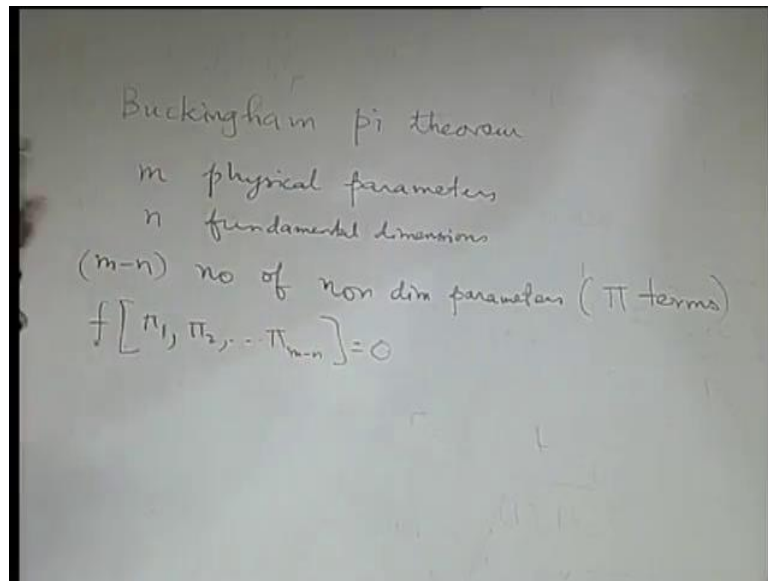 Buckingham pi theorem
m physical parameters
n fundamental dimensions
(m-n) no of non dim parameters (π terms)
f[π₁, π₂, .. πₘ₋ₙ]=0